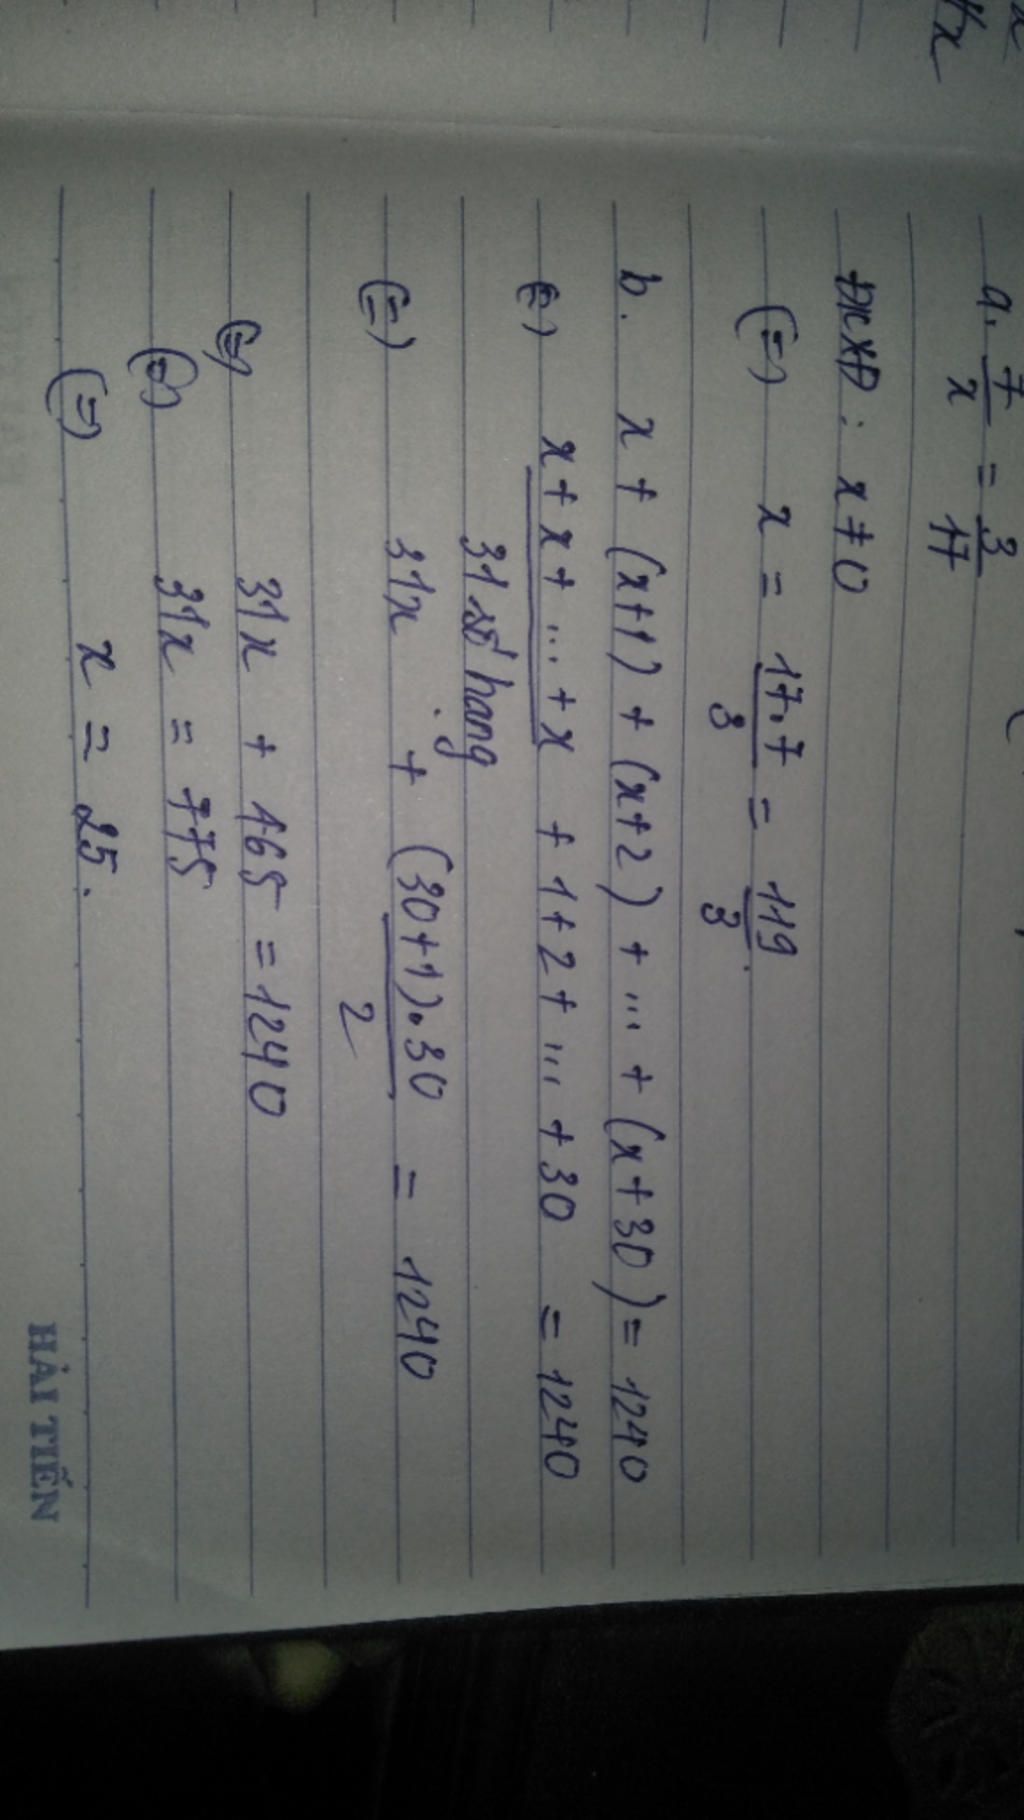 a. 7/x = 3/17
ĐKXĐ: x ≠ 0
(=) x = 17.7/3 = 119/3.
b. x + (x+1) + (x+2) + ... + (x+30) = 1240
(=) x + x + ... + x + 1 + 2 + ... + 30 = 1240
31 số hạng
(=) 31x + (30+1).30/2 = 1240
(=) 31x + 465 = 1240
(=) 31x = 775
(=) x = 25.
HẢI TIẾN